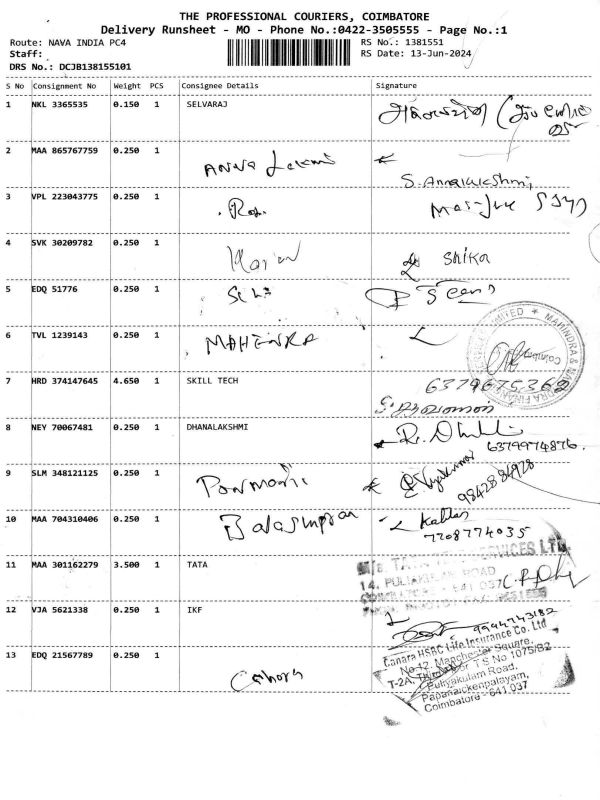 THE PROFESSIONAL COURIERS, COIMBATORE
Delivery Runsheet - MO - Phone No.:0422-3505555 - Page No.:1
Route: NAVA INDIA PC4 RS No.: 1381551
Staff: RS Date: 13-Jun-2024
DRS No.: DCJB138155101
S No Consignment No Weight PCS Consignee Details Signature
1 NKL 3365535 0.150 1 SELVARAJ
2 MAA 865767759 0.250 1 ANNA Laxmi
S. Annalakshmi
3 VPL 223043775 0.250 1
4 SVK 30209782 0.250 1 Shika
5 EDQ 51776 0.250 1
6 TVL 1239143 0.250 1 MAHENRA
Coimbatore
MAHINDRA & MAHINDRA
7 HRD 374147645 4.650 1 SKILL TECH 6379675362
8 NEY 70067481 0.250 1 DHANALAKSHMI
6379974876.
9 SLM 348121125 0.250 1 Ponmani
9842884928
10 MAA 704310406 0.250 1
7708774035
11 MAA 301162279 3.500 1 TATA
SERVICES LTD.
14, ROAD
12 VJA 5621338 0.250 1 IKF
9994743182
Canara HSBC Life Insurance Co. Ltd
No 12, Manchester Square,
T-2A, Floor T S No 1075/B2
Puliyakulam Road,
Papanaickenpalayam,
Coimbatore - 641 037
13 EDQ 21567789 0.250 1